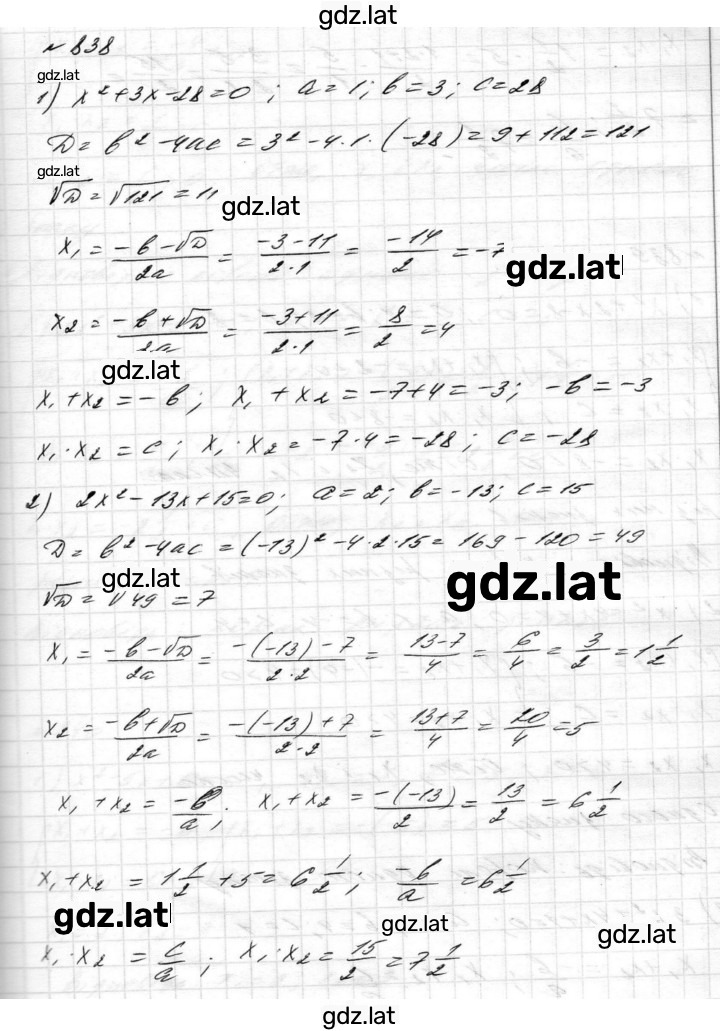 gdz.lat
№ 838
gdz.lat
1) x² + 3x - 28 = 0 ; a = 1 ; b = 3 ; c = 28
D = b² - 4ac = 3² - 4 · 1 · (-28) = 9 + 112 = 121
gdz.lat
√D = √121 = 11
gdz.lat
x₁ = (-b - √D)/(2a) = (-3 - 11)/(2 · 1) = (-14)/2 = -7
gdz.lat
x₂ = (-b + √D)/(2a) = (-3 + 11)/(2 · 1) = 8/2 = 4
gdz.lat
x₁ + x₂ = -b ; x₁ + x₂ = -7 + 4 = -3 ; -b = -3
x₁ · x₂ = c ; x₁ · x₂ = -7 · 4 = -28 ; c = -28
2) 2x² - 13x + 15 = 0 ; a = 2 ; b = -13 ; c = 15
D = b² - 4ac = (-13)² - 4 · 2 · 15 = 169 - 120 = 49
gdz.lat
gdz.lat
√D = √49 = 7
x₁ = (-b - √D)/(2a) = (-(-13) - 7)/(2 · 2) = (13 - 7)/4 = 6/4 = 3/2 = 1 1/2
gdz.lat
x₂ = (-b + √D)/(2a) = (-(-13) + 7)/(2 · 2) = (13 + 7)/4 = 20/4 = 5
x₁ + x₂ = -b/a ; x₁ + x₂ = -(-13)/2 = 13/2 = 6 1/2
x₁ + x₂ = 1 1/2 + 5 = 6 1/2 ; -b/a = 6 1/2
gdz.lat
gdz.lat
gdz.lat
x₁ · x₂ = c/a ; x₁ · x₂ = 15/2 = 7 1/2
gdz.lat